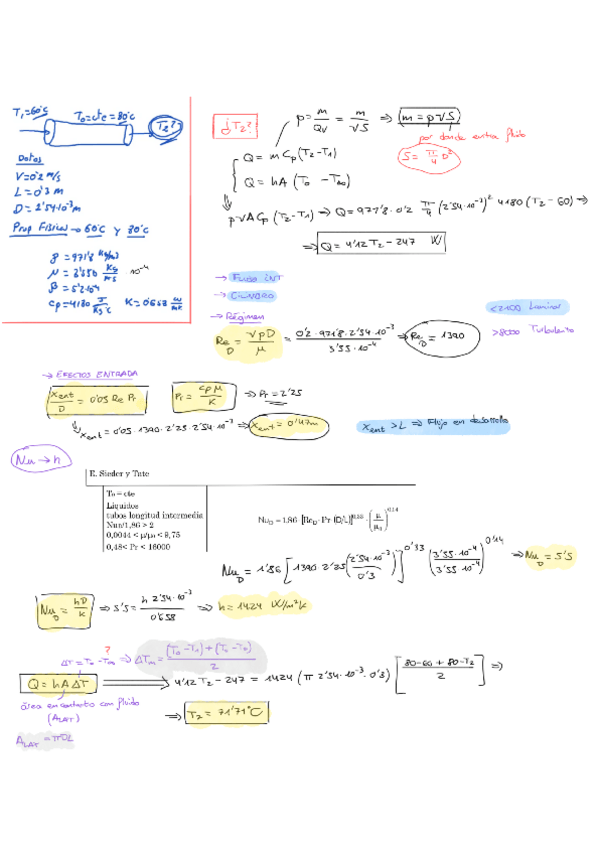 T₁=60°C
T₀=cte=80°C
T₂?
Datos
V=0'2 m/s
L=0'3 m
D=2'54·10⁻³ m
Prop Físicas → 60°C y 80°C
ρ = 971'8 Kg/m³
μ = 3'550 Kg/ms 10⁻⁴
cp=4180 J/Kg°C K=0'658 W/mK
¿T₂?
ρ = m/Qv = m/vS ⇒ m = ρvS
por donde entra fluido
S = π/4 D²
Q = m Cp (T₂-T₁)
Q = hA (T₀ - T∞)
ρVA Cp (T₂-T₁) → Q = 971'8·0'2 π/4 (2'54·10⁻³)² 4180 (T₂-60) ⇒
⇒ Q = 4'12 T₂ - 247 W
→ FLUJO INT
→ CILINDRO
→ Régimen
<2100 Laminar
>8000 Turbulento
Re_D = vρD/μ = 0'2·971'8·2'54·10⁻³/3'55·10⁻⁴ ⇒ Re_D = 1390
→ EFECTOS ENTRADA
Xent/D = 0'05 Re Pr
Pr = cp μ/K ⇒ Pr = 2'25
Xent = 0'05·1390·2'25·2'54·10⁻³ ⇒ Xent = 0'47m
Xent > L ⇒ Flujo en desarrollo
Nu → h
E. Sieder y Tate
T₀ = cte
Líquidos
tubos longitud intermedia
Nu/1,86 > 2
0,0044 < μ/μ₀ < 9,75
0,48 < Pr < 16000
Nu_D = 1.86 · [Re_D · Pr (D/L)]^0.33 · (μ/μ₀)^0.14
Nu_D = 1'86 [1390 2'25 (2'54·10⁻³/0'3)]^0'33 (3'55·10⁻⁴/3'55·10⁻⁴)^0'14 ⇒ Nu_D = 5'5
Nu_D = hD/K ⇒ 5'5 = h 2'54·10⁻³/0'658 ⇒ h = 1424 W/m²K
?
ΔT = T₀ - T∞ ⇒ ΔTm = (T₀-T₁)+(T₀-T₂)/2
Q = hAΔT ⇒ 4'12 T₂ - 247 = 1424 (π 2'54·10⁻³·0'3) [80-60+80-T₂/2] ⇒
área en contacto con fluido
(A_LAT)
⇒ T₂ = 71'71°C
A_LAT = πDL